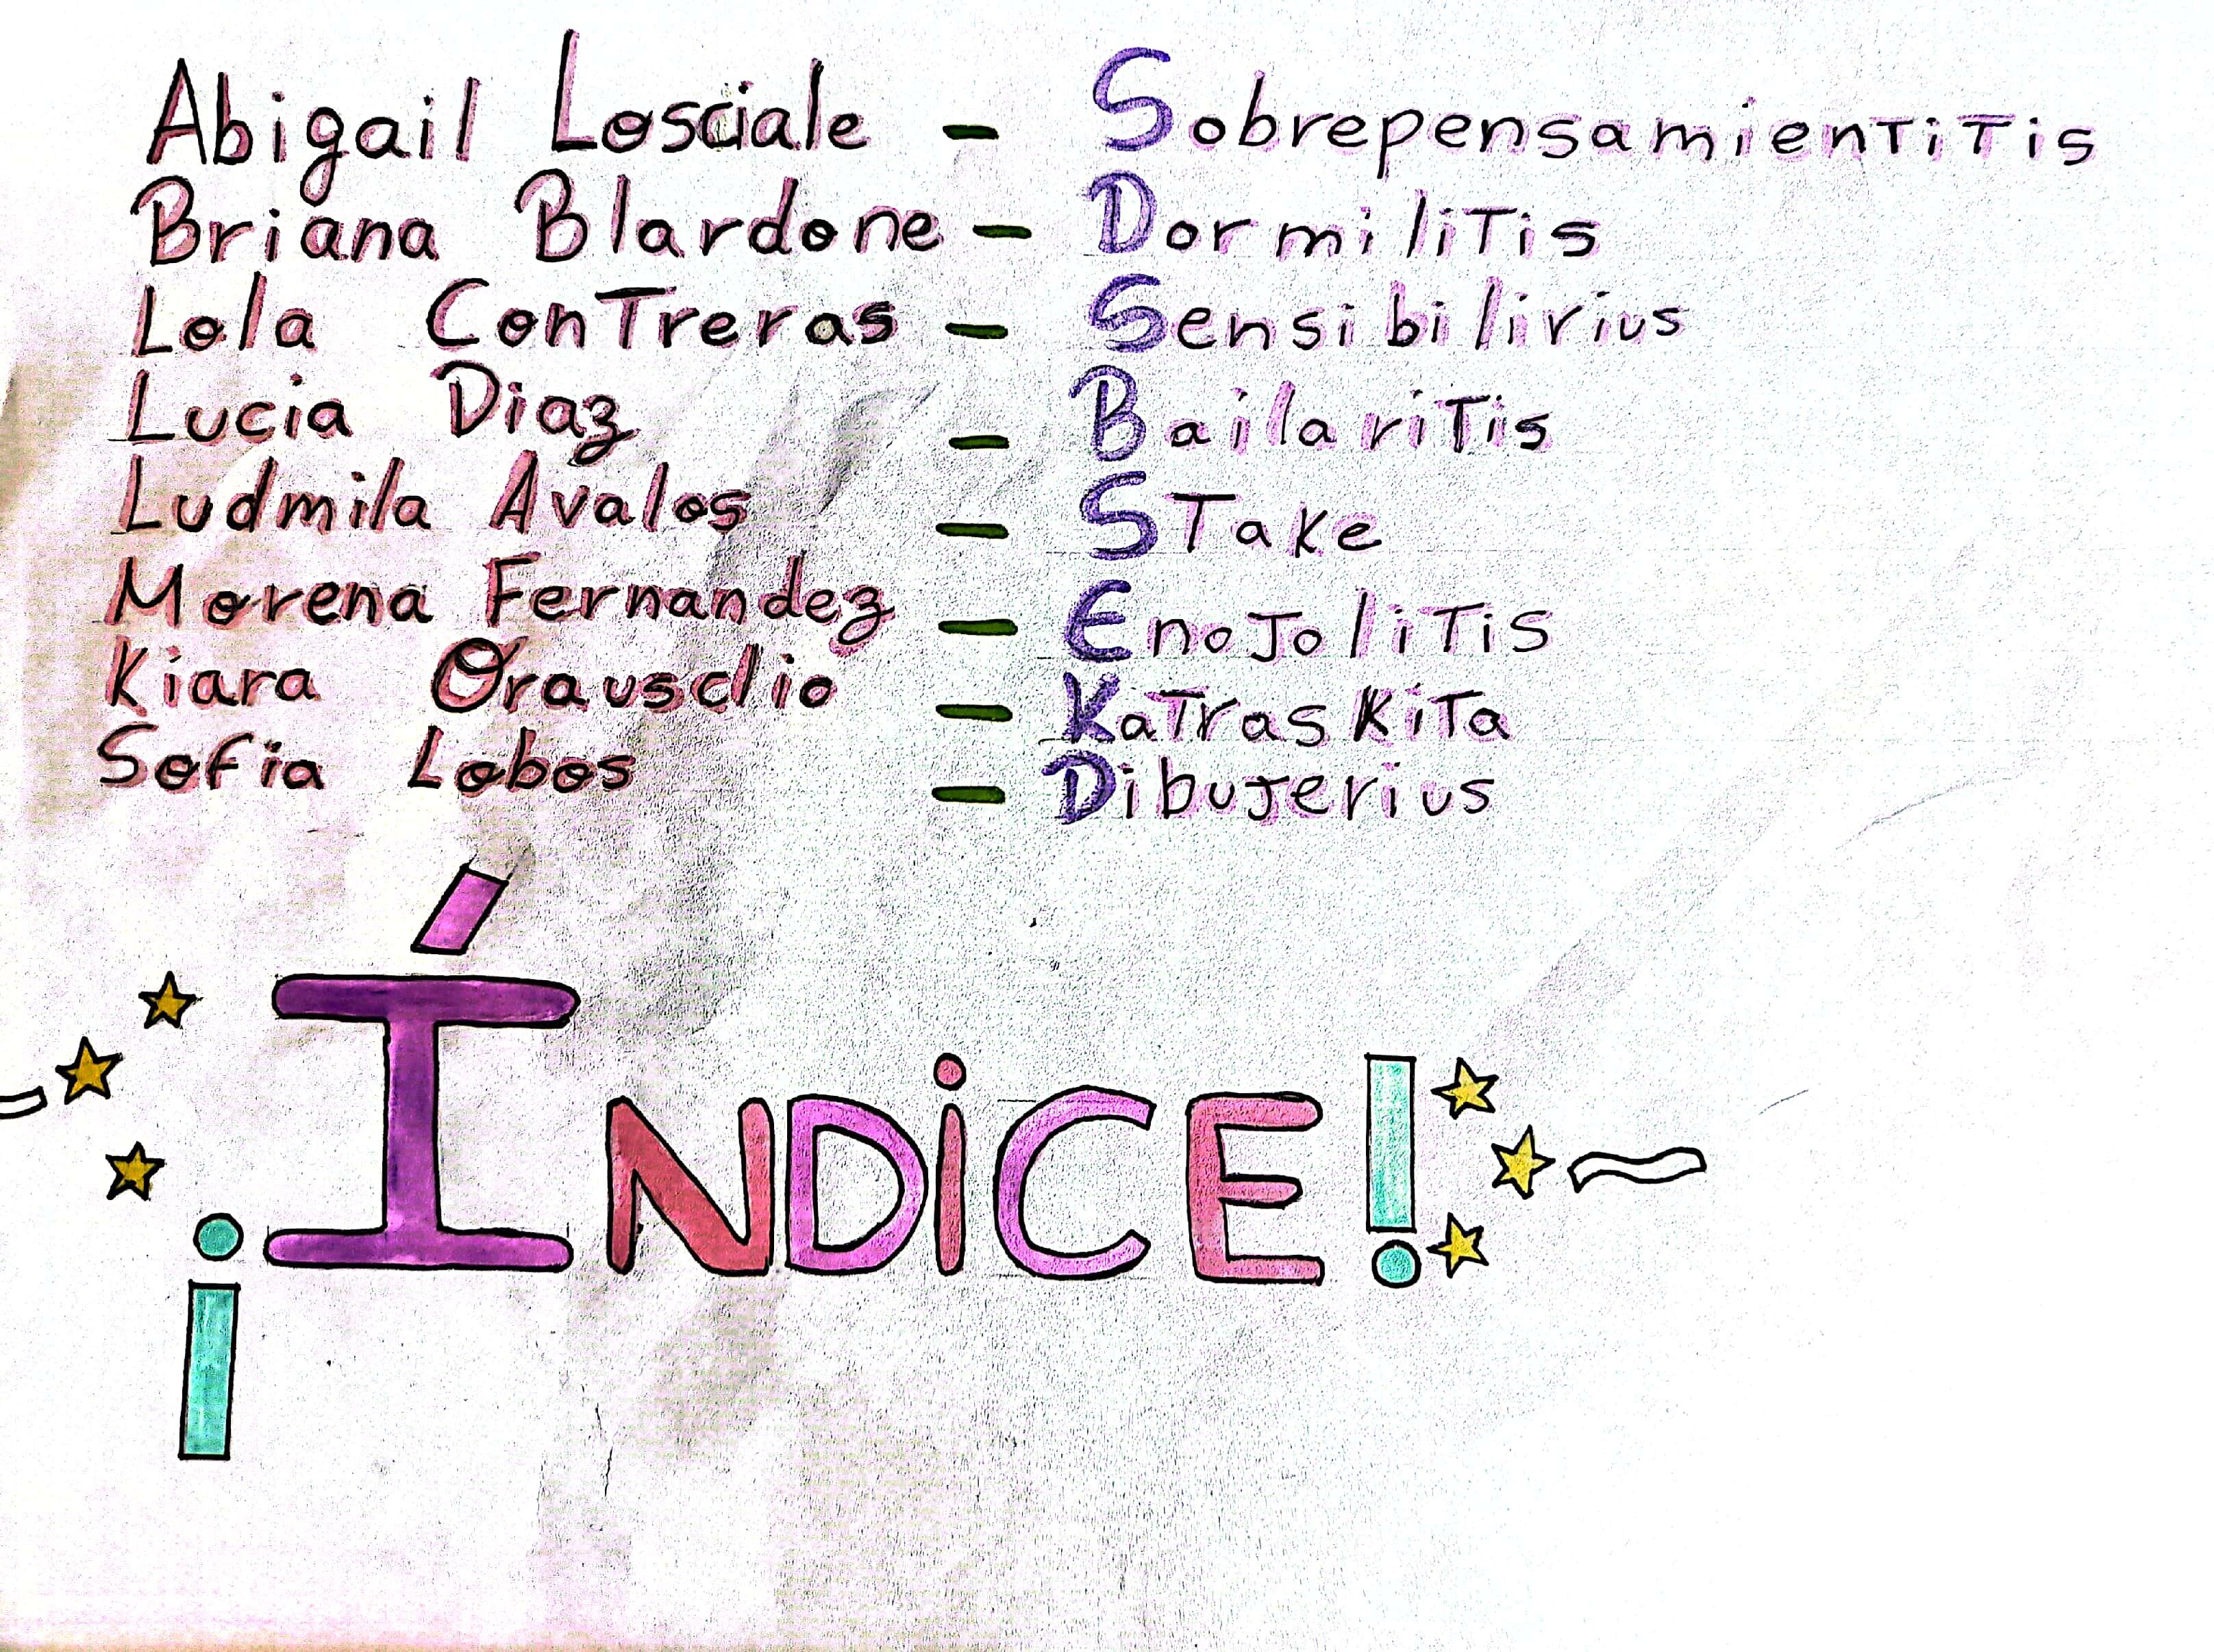 Abigail Losciale - Sobrepensamientitis
Briana Blardone - Dormilitis
Lola Contreras - Sensibilirius
Lucia Diaz - Bailaritis
Ludmila Avalos - Stake
Morena Fernandez - Enojolitis
Kiara Orausclio - Katraskita
Sofia Lobos - Dibujerius
¡ÍNDiCE!